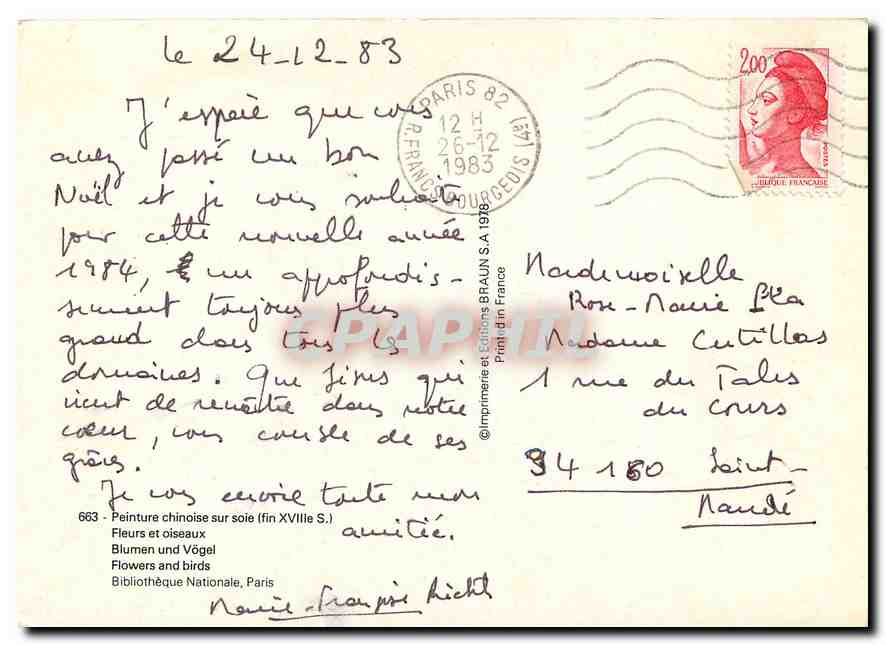 le 24-12-83
J'espère que vous
avez passé un bon
Noël et je vous souhaite
pour cette nouvelle année
1984, un approfondis-
sement toujours plus
grand dans tous les
domaines. Que Jésus qui
vient de renaître dans notre
cœur, vous comble de ses
grâces.
Je vous envoie toute mon
amitié.
Marie-Françoise
663 - Peinture chinoise sur soie (fin XVIIIe S.)
Fleurs et oiseaux
Blumen und Vögel
Flowers and birds
Bibliothèque Nationale, Paris
©Imprimerie et Editions BRAUN S.A 1978
Printed in France
PARIS 82 (4E)
12 H
26-12
1983
R. FRANCS BOURGEOIS
2,00
POSTES
BLIQUE FRANÇAISE
Mademoiselle
Rose-Marie
Madame Cutillas
1 rue du Talus
du Cours
94160 Saint-
Mandé
CPAPHIL